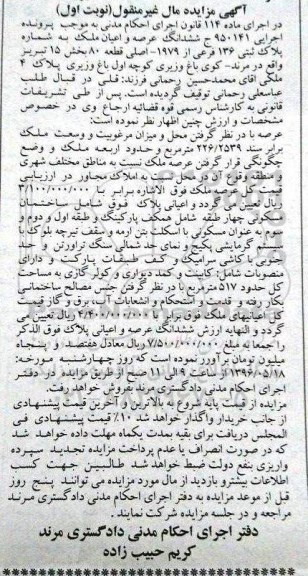 آگهی مزایده مال غیرمنقول(نوبت اول)
در اجرای ماده ۱۱۴ قانون اجرای احکام مدنی به موجب پرونده
اجرایی ۹۵۰۱۴۱ ج ششدانگ عرصه و اعیان ملک به شماره
پلاک ثبتی ۱۳۶ فرعی از ۱۹۷۹- اصلی قطعه ۸۰ بخش ۱۵ تبریز
واقع در مرند- کوی باغ وزیری کوچه اول باغ وزیری پلاک ۴
ملکی آقای محمدحسین رحمانی فرزند: قلی در قبال طلب
عباسعلی رحمانی توقیف گردیده است. پس از طی تشریفات
قانونی به کارشناس رسمی قوه قضائیه ارجاع وی در خصوص
مشخصات و ارزش چنین اظهار نظر نموده است:
عرصه با در نظر گرفتن محل و میزان مرغوبیت و وسعت ملک
برابر سند ۲۲۶/۲۵۳۹ مترمربع و حدود اربعه ملک و وضع
چگونگی قرار گرفتن عرصه ملک نسبت به مناطق مختلف شهری
و منطقه وقوع آن در مرند و نسبت به املاک مجاور در ارزیابی
قیمت کل عرصه ملک فوق الاشاره برابر با ۳/۱۰۰/۰۰۰/۰۰۰
ریال تعیین می گردد و اعیانی پلاک فوق شامل ساختمان
مسکونی چهار طبقه شامل همکف پارکینگ و طبقه اول و دوم و
سوم به عنوان مسکونی با اسکلت بتن ارمه و سقف تیرچه بلوک با
سیستم گرمایشی پکیج و نمای حد شمالی سنگ تراورتن و حد
جنوبی با کاشی سرامیک و کف طبقات پارکت و دارای
منصوبات شامل: کابینت و کمد دیواری و کولر گازی به مساحت
کل حدود ۵۱۷ مترمربع با در نظر گرفتن جنس مصالح ساختمانی
بکار رفته و قدمت و استحکام و انشعابات آب، برق و گاز قیمت
کل اعیانیهای ملک فوق برابر با ۴/۴۰۰/۰۰۰/۰۰۰ ریال تعیین می
گردد و النهایه ارزش ششدانگ عرصه و اعیانی پلاک فوق الذکر
را جمعا به مبلغ ۷/۵۰۰/۰۰۰/۰۰۰ ریال معادل هفتصد و پنجاه
میلیون تومان برآورد نموده است که روز چهارشنبه مورخه:
۱۳۹۶/۵/۱۸ از ساعت ۹ الی ۱۱ صبح از طریق مزایده در دفتر
اجرای احکام مدنی دادگستری مرند بفروش خواهد رفت.
مزایده از قیمت پایه شروع به بالاترین و آخرین قیمت پیشنهادی
از جانب خریدار واگذار خواهد شد ۱۰٪ قیمت پیشنهادی فی
المجلس دریافت برای بقیه بمدت یکماه مهلت داده خواهد شد
که در صورت انصراف یا عدم پرداخت مزایده تجدید سپرده
واریزی بنفع دولت ضبط خواهد شد طالبین جهت کسب
اطلاعات بیشترو بازدید از مال مورد مزایده می توانند پنج روز
قبل از موعد مزایده به دفتر اجرای احکام مدنی دادگستری مرند
مراجعه و در جلسه مزایده شرکت نمایند .
دفتر اجرای احکام مدنی دادگستری مرند
کریم حبیب زاده